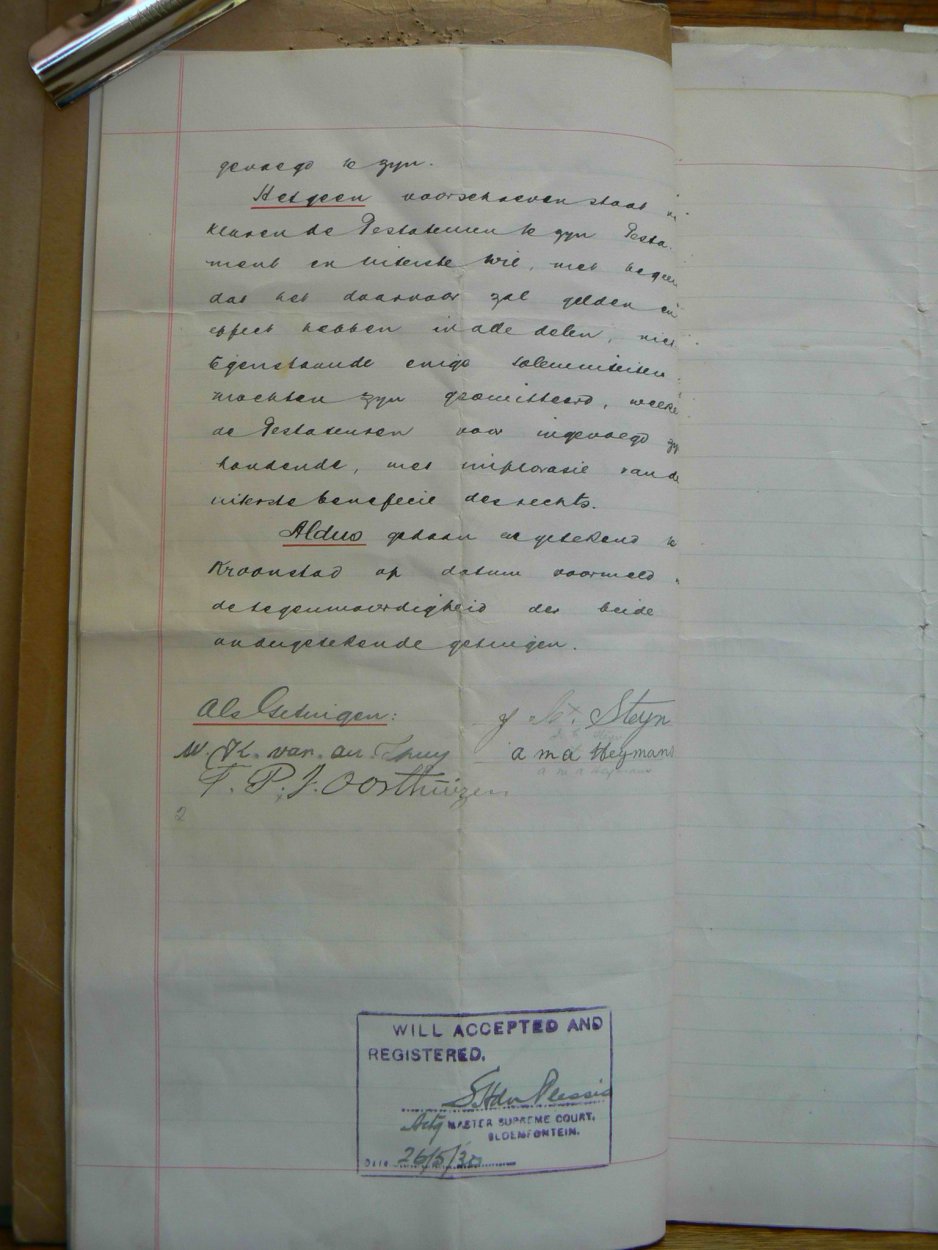 gevoegd te zyn.
Hetgeen voorschreven staat
klaren de Testateuren te zyn Testa-
ment en uiterste Wil, met begeer
dat het daarvoor zal gelden en
effect hebben in alle delen, niet
tegenstaande enige solemniteiten
mochten zyn geomitteerd, welke
de Testateuren voor ingevoegd zyn
houdende, met imploratie van de
uiterste beneficie des rechts.
Aldus gedaan en getekend te
Kroonstad op datum voormeld
de tegenwoordigheid der beide
ondergetekende getuigen.
Als Getuigen:
Steyn
W. K. van
a m a Heymans
a m a Heymans
T. P. J. Oosthuizen
2
WILL ACCEPTED AND
REGISTERED.
du Plessis
Actg MASTER SUPREME COURT,
BLOEMFONTEIN.
Date 26/5/30